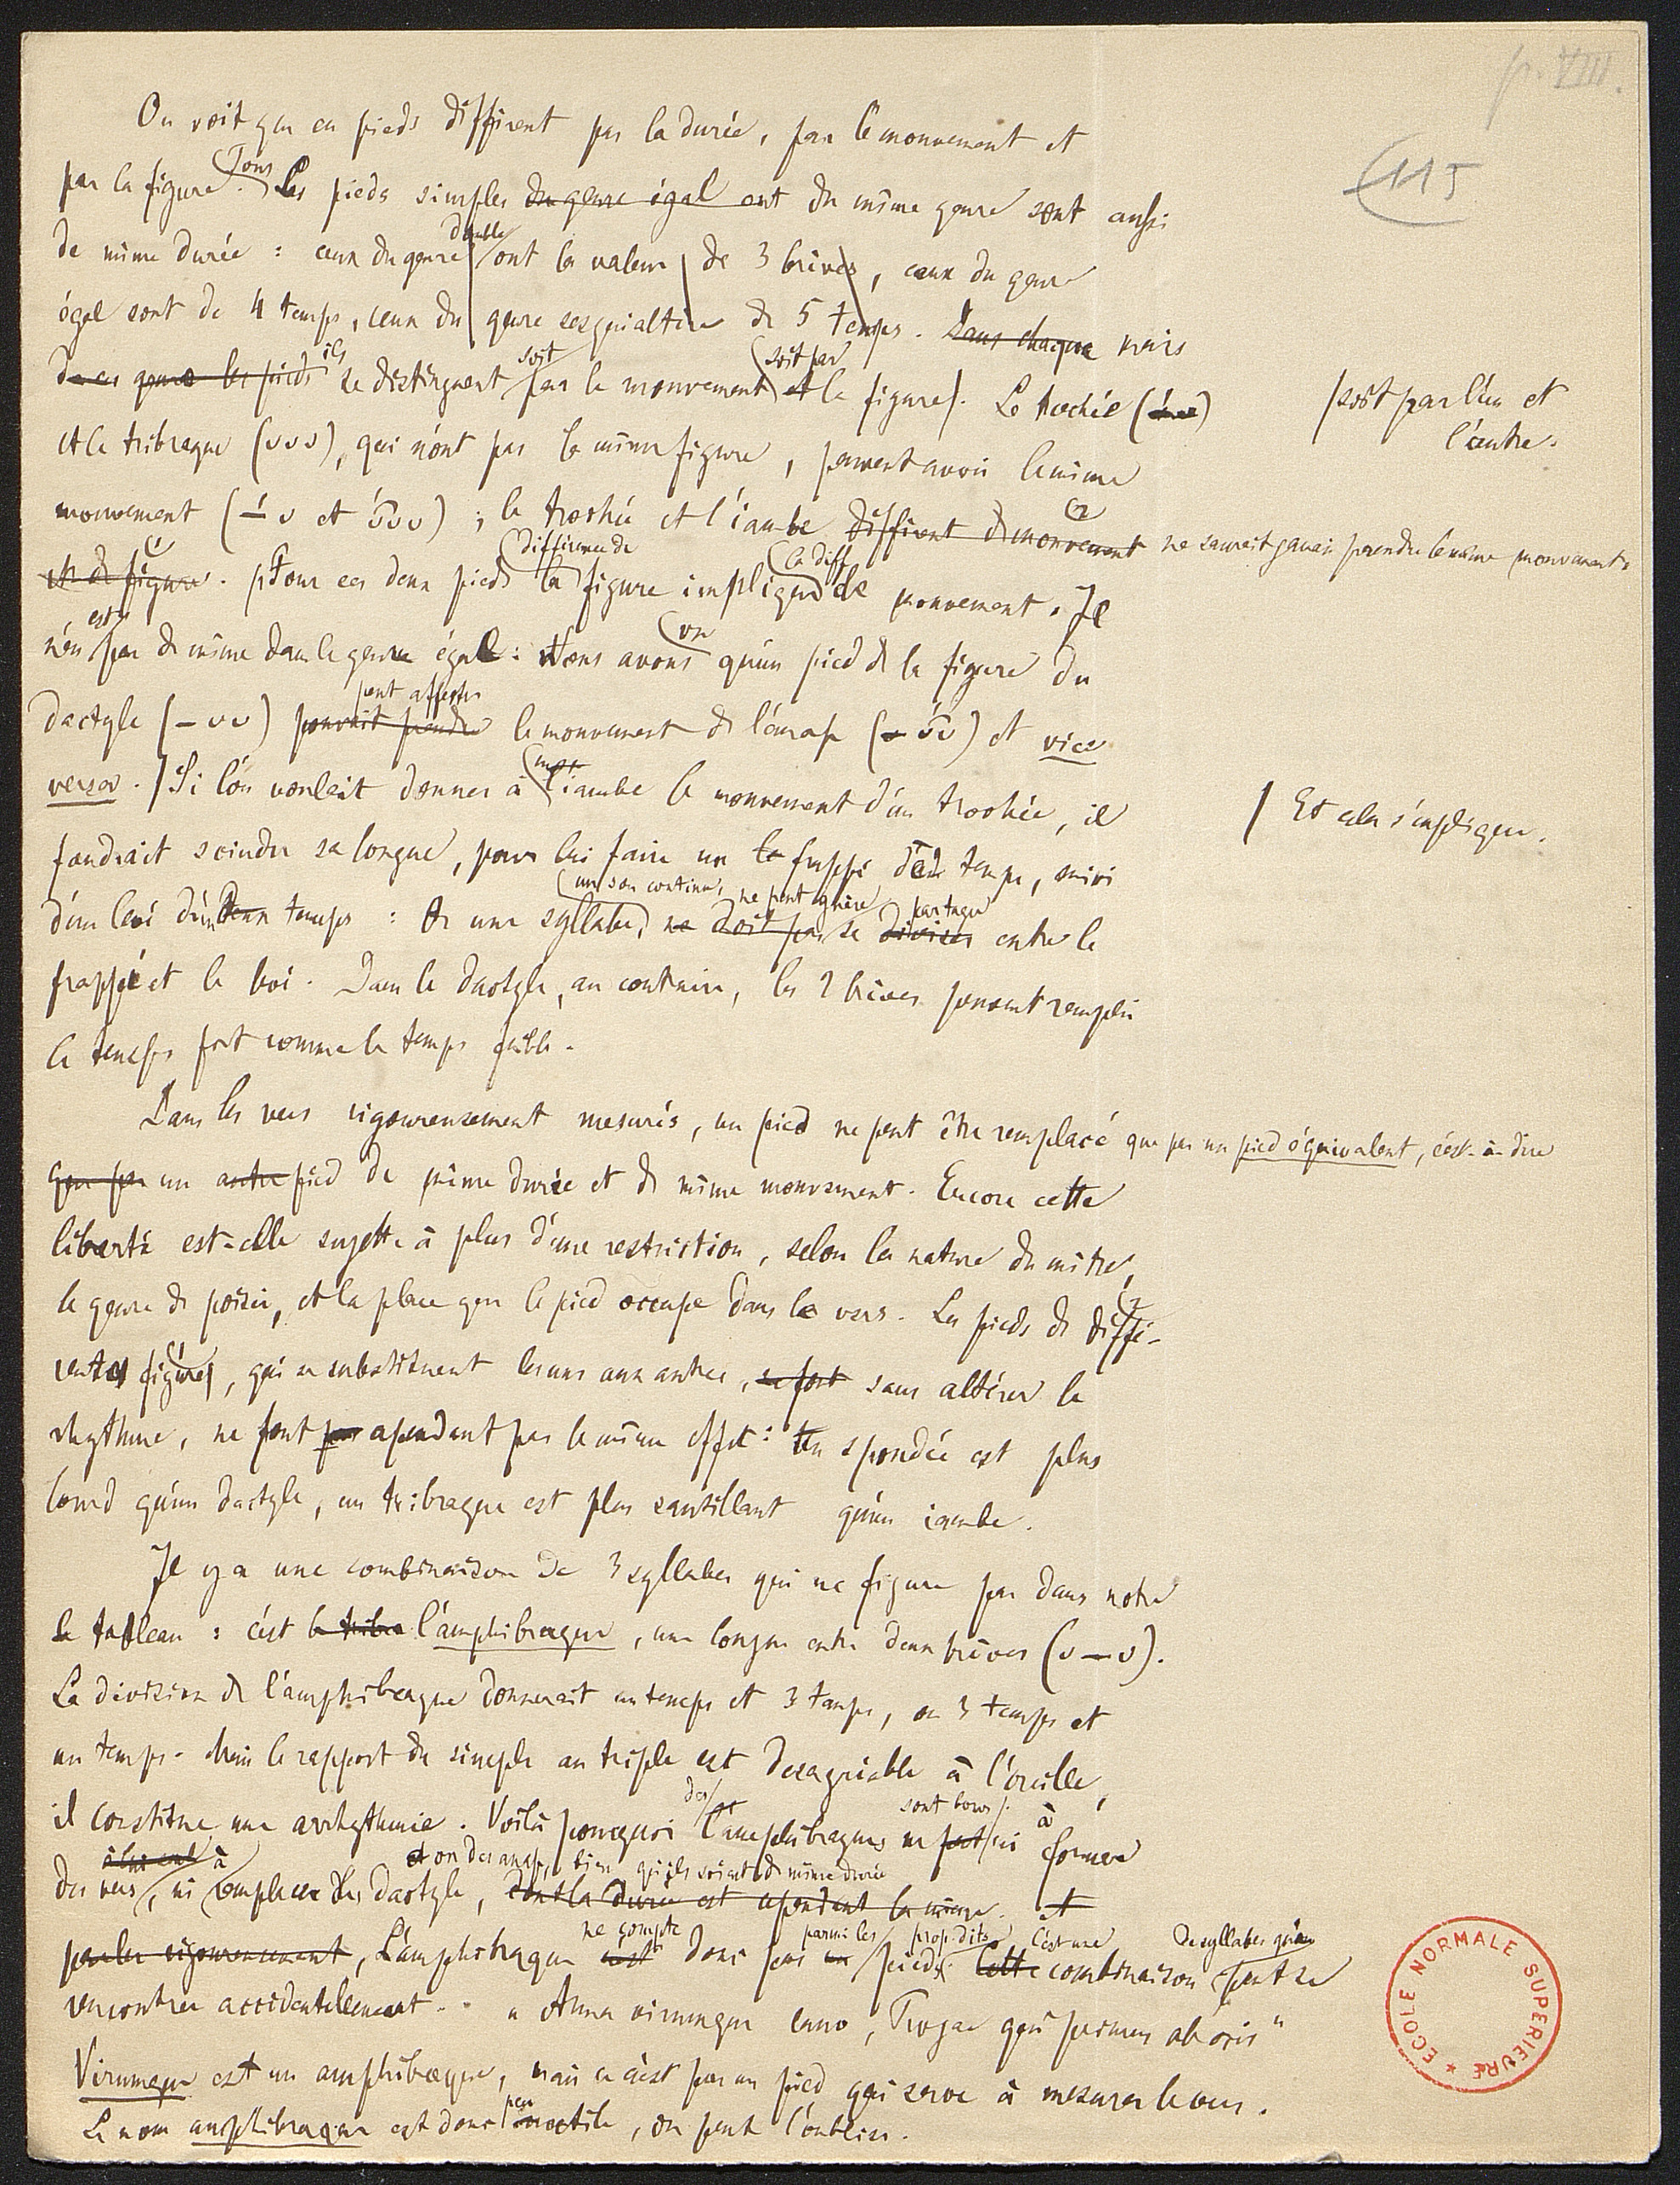 p. VIII.
115
On voit que ces pieds diffèrent par la durée, par le mouvement et
par la figure. Tous Les pieds simples du genre égal ont du même genre sont aussi
de même durée : ceux du genre double ont la valeur de 3 brèves, ceux du genre
égal sont de 4 temps, ceux du genre sesquialtère de 5 temps. Dans chaque mais
de ces genres les pieds ils se distinguent soit par le mouvement soit par et la figure /. Le trochée
/ soit par l'un et
l'autre.
et le tribraque (υυυ), qui n'ont pas la même figure, peuvent avoir le même
mouvement (–́ υ et ύυυ) ; le trochée et l'iambe diffèrent de mouvement ne saurait jamais prendre le même mouvement.
et de figure. Pour ces deux pieds la différence de figure implique la diff. de mouvement. Il
n'en est pas de même dans le genre égal : Nous avons vu qu'un pied de la figure du
dactyle (– υυ) pouvait prendre peut affecter le mouvement de l'anap. (– ύυ) et vice
versa. / Si l'on voulait donner à l'iambe le mouvement d'un trochée, il
/ Et cela s'explique.
faudrait scinder sa longue, pour lui faire un frappé d'un temps, suivi
d'un levé d'un deux temps : Or une syllabe, un son continu, ne doit pas ne peut guère se diviser partager entre le
frappé et le levé. Dans le dactyle, au contraire, les 2 brèves peuvent remplir
le temps fort comme le temps faible.
Dans les vers rigoureusement mesurés, un pied ne peut être remplacé que par un pied équivalent, c'est-à-dire
que par un autre pied de même durée et de même mouvement. Encore cette
liberté est-elle sujette à plus d'une restriction, selon la nature du mètre,
le genre de poésie, et la place que le pied occupe dans le vers. Les pieds de diffé-
rentes figures, qui se substituent les uns aux autres, sans altérer le
rhythme, ne font pas cependant pas le même effet : Un spondée est plus
lourd qu'un dactyle, un tribraque est plus sautillant qu'un iambe.
Il y a une combinaison de 3 syllabes qui ne figure pas dans notre
le tableau : c'est le tribra l'amphibraque, une longue entre deux brèves (υ – υ).
La division de l'amphibraque donnerait un temps et 3 temps, ou 3 temps et
un temps. Mais le rapport du simple au triple est desagréable à l'oreille,
il constitue une arrhythmie. Voilà pourquoi des l'amphibraques ne sont bons ni à former
des vers, ni à remplacer des dactyles, et on des anap., bien qu'ils soient de même durée dont la durée est cependant la même. et
parler rigoureusement, L'amphibraque n'est ne compte donc pas un parmi les pieds prop. dits. Cette C'est une combinaison de syllabes qu'on peut se
rencontrer accidentellement. « Arma virumque cano, Trojae qui primus ab oris "
Virumque est un amphibraque, mais ce n'est pas un pied qui serve à mesurer le vers.
Le nom amphibraque est donc peu inutile, on peut l'oublier.
ECOLE NORMALE SUPERIEURE